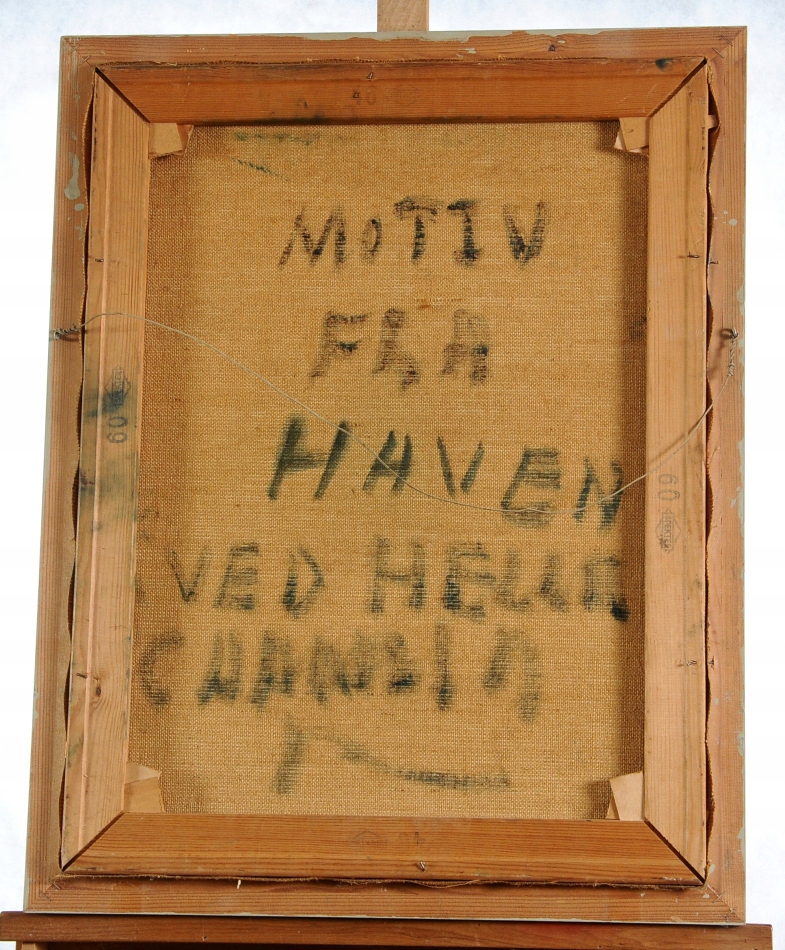 MOTIV
FRA
HAVEN
VED HELLE
60
60